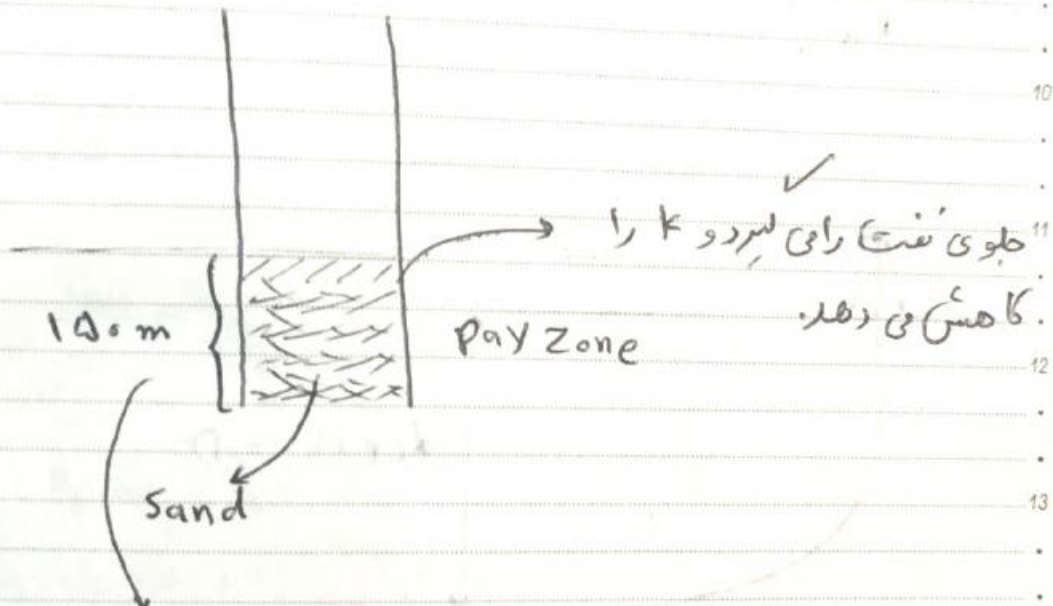 10
جلوی نفت را می گیرد و k را
11
کاهش می دهد.
۱۵۰ m
Pay Zone
12
Sand
13